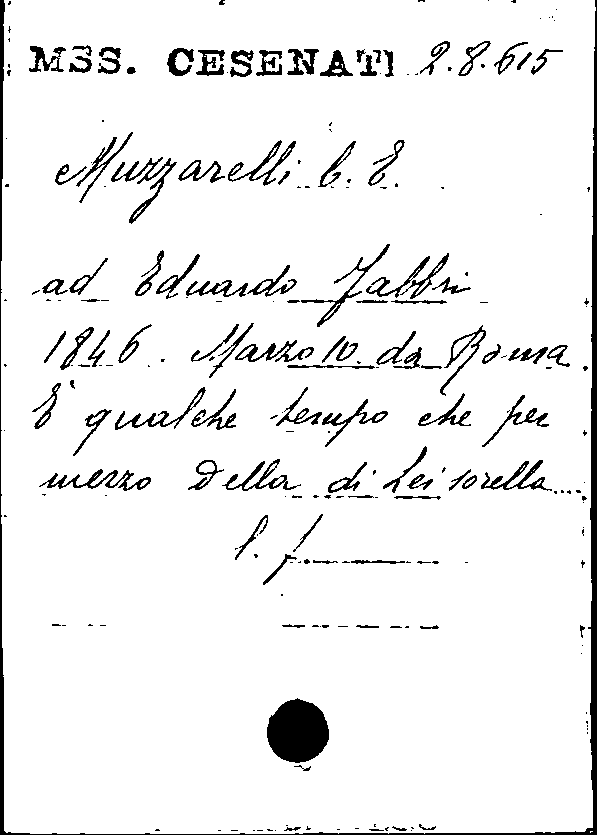 MSS. CESENATI 2.8.615
Muzzarelli C. E.
ad Eduardo Fabbri
1846. Marzo 10. da Roma
È qualche tempo che per
mezzo della di Lei sorella....
l. f.